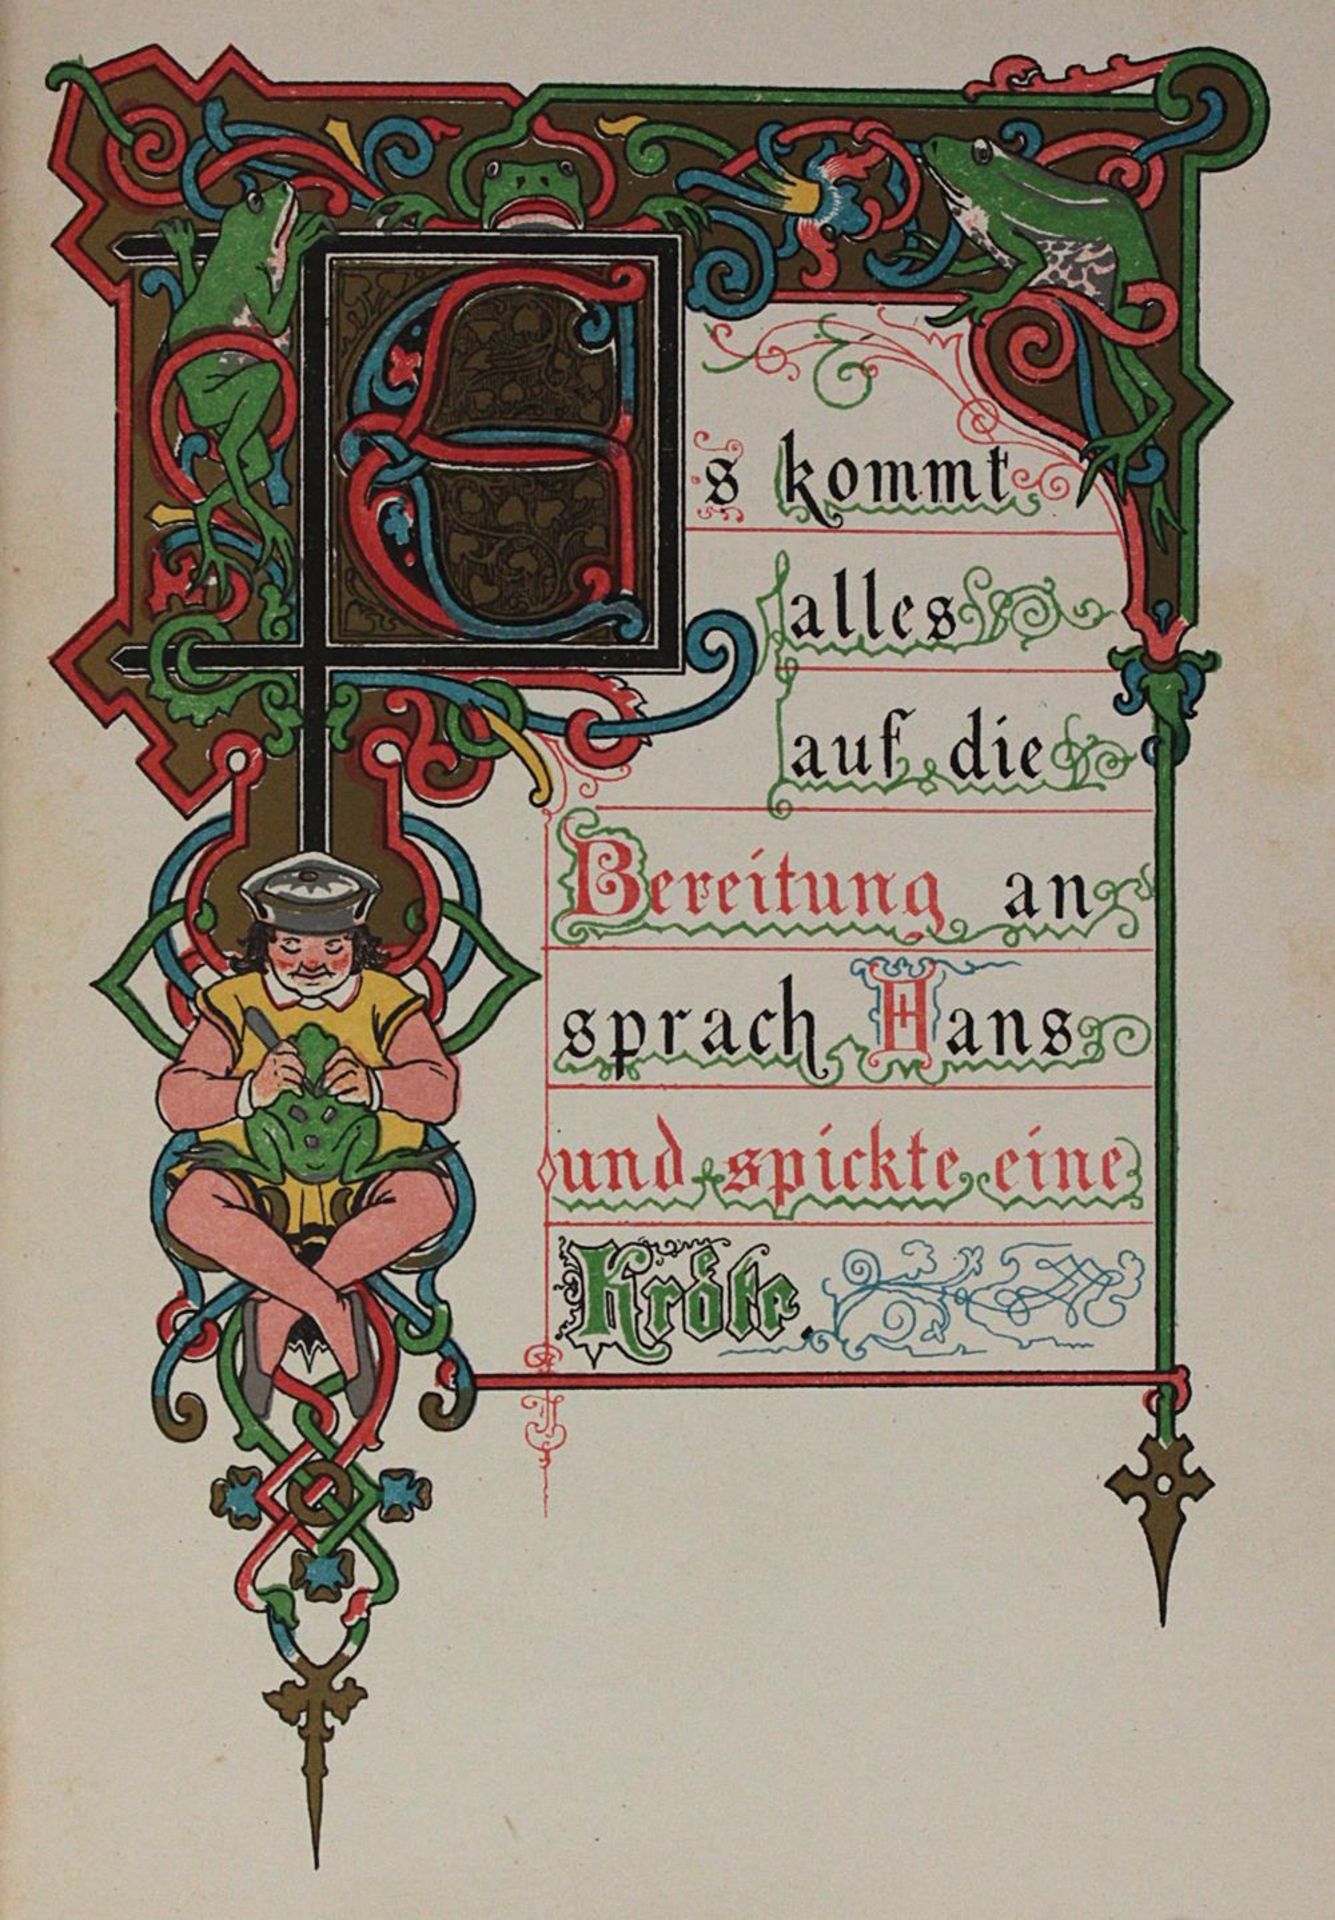 Es kommt
alles
auf die
Bereitung an
sprach Hans
und spickte eine
Kröte.